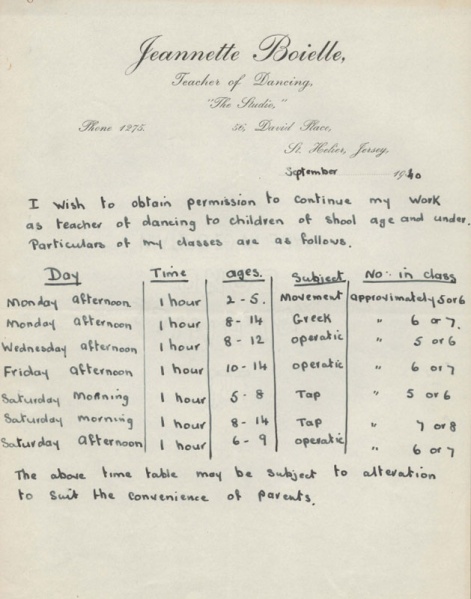 Jeannette Boielle,
Teacher of Dancing,
"The Studio,"
Phone 1275. 56, David Place,
St. Helier, Jersey,
September 1940
I wish to obtain permission to continue my work
as teacher of dancing to children of shool age and under.
Particulars of my classes are as follows.
Day Time ages. Subject No. in class
Monday afternoon 1 hour 2 - 5. Movement approximately 5 or 6
Monday afternoon 1 hour 8 - 14 Greek " 6 or 7.
Wednesday afternoon 1 hour 8 - 12 operatic " 5 or 6
Friday afternoon 1 hour 10 - 14 operatic " 6 or 7
Saturday morning 1 hour 5 - 8 Tap " 5 or 6
Saturday morning 1 hour 8 - 14 Tap " 7 or 8
Saturday afternoon 1 hour 6 - 9 operatic " 6 or 7
The above time table may be subject to alteration
to suit the convenience of parents.